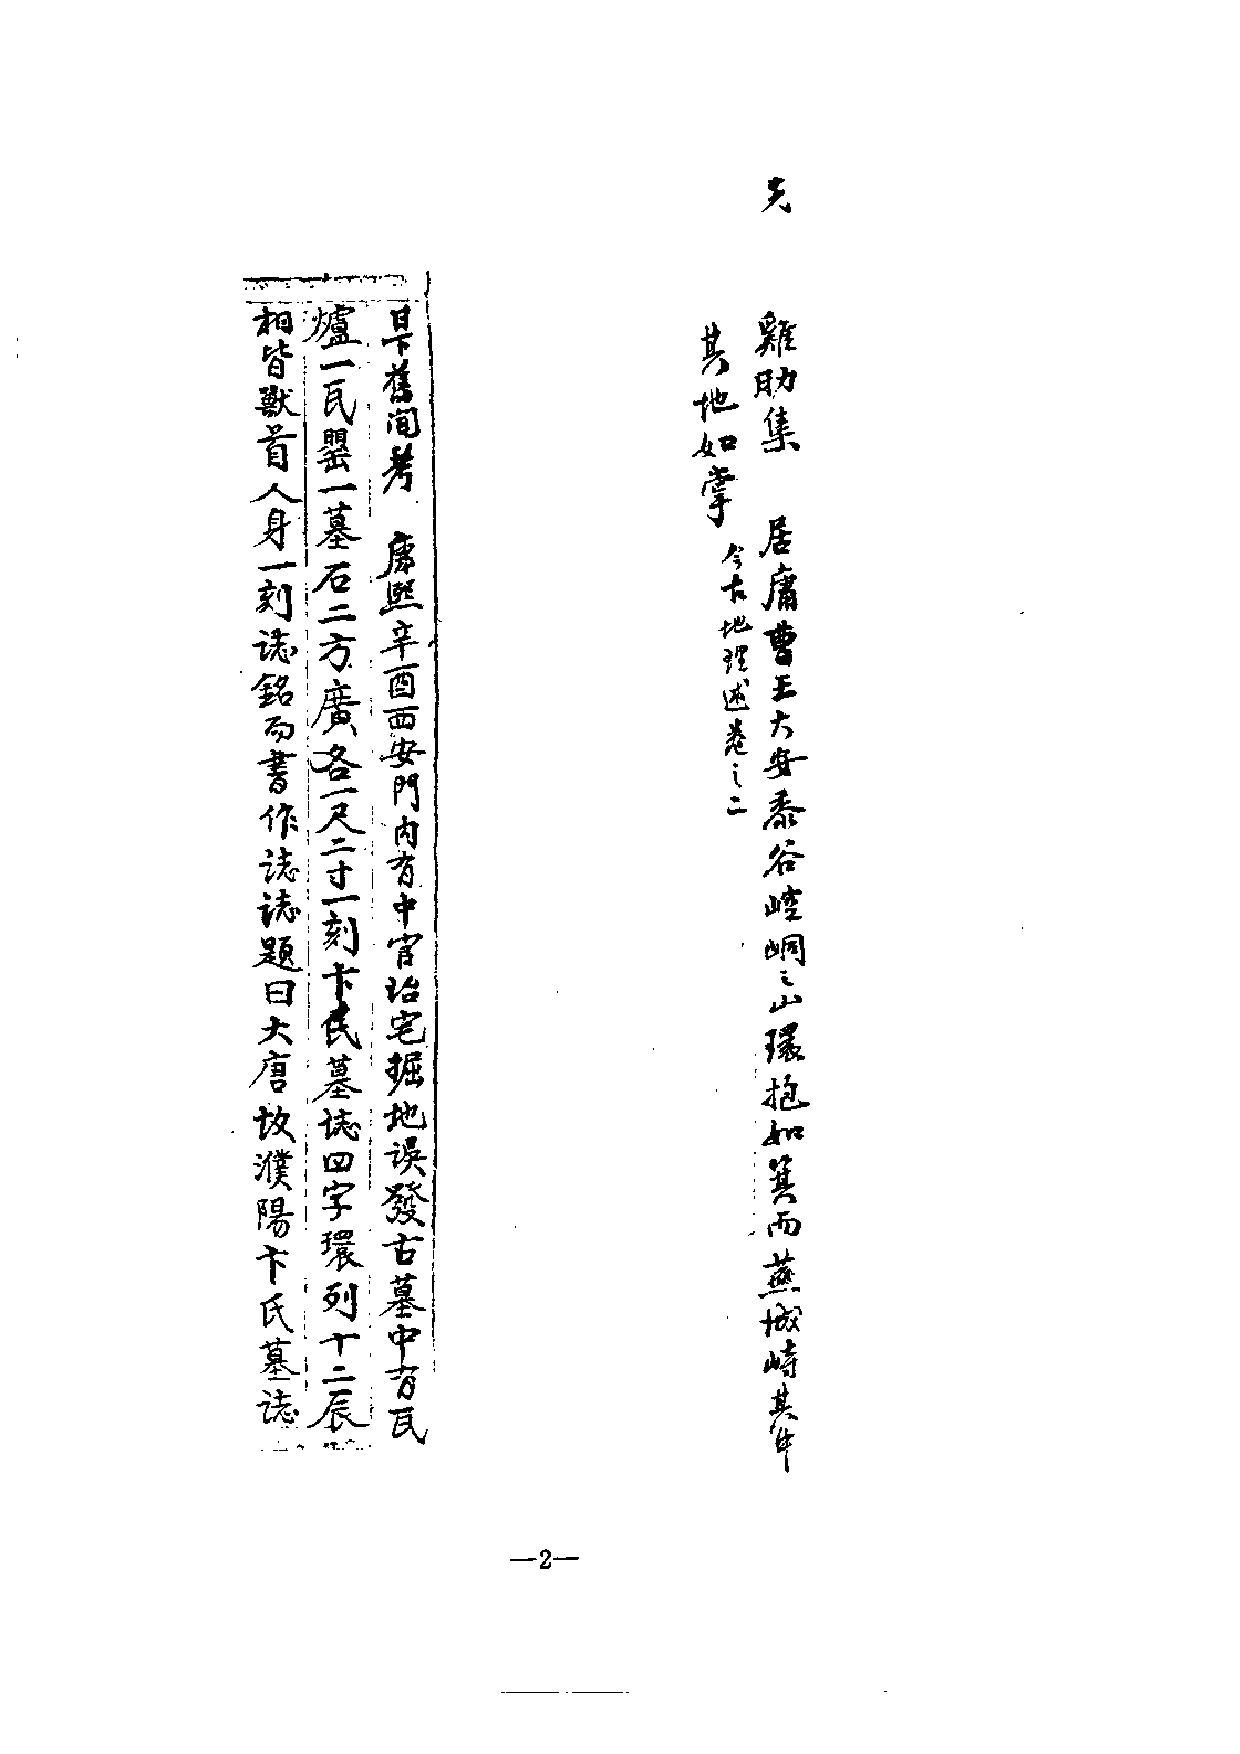 先
雞肋集 居庸曹王大安黍谷崆峒之山環抱如箕而燕城峙其中
其地如掌 今古地理述卷之二
日下舊聞考 康熙辛酉西安門內有中官治宅掘地誤發古墓中有瓦
爐一瓦罌一墓石二方廣各一尺二寸一刻卞氏墓誌四字環列十二辰
相皆獸首人身一刻誌銘而書作誌誌題曰大唐故濮陽卞氏墓誌
—2—